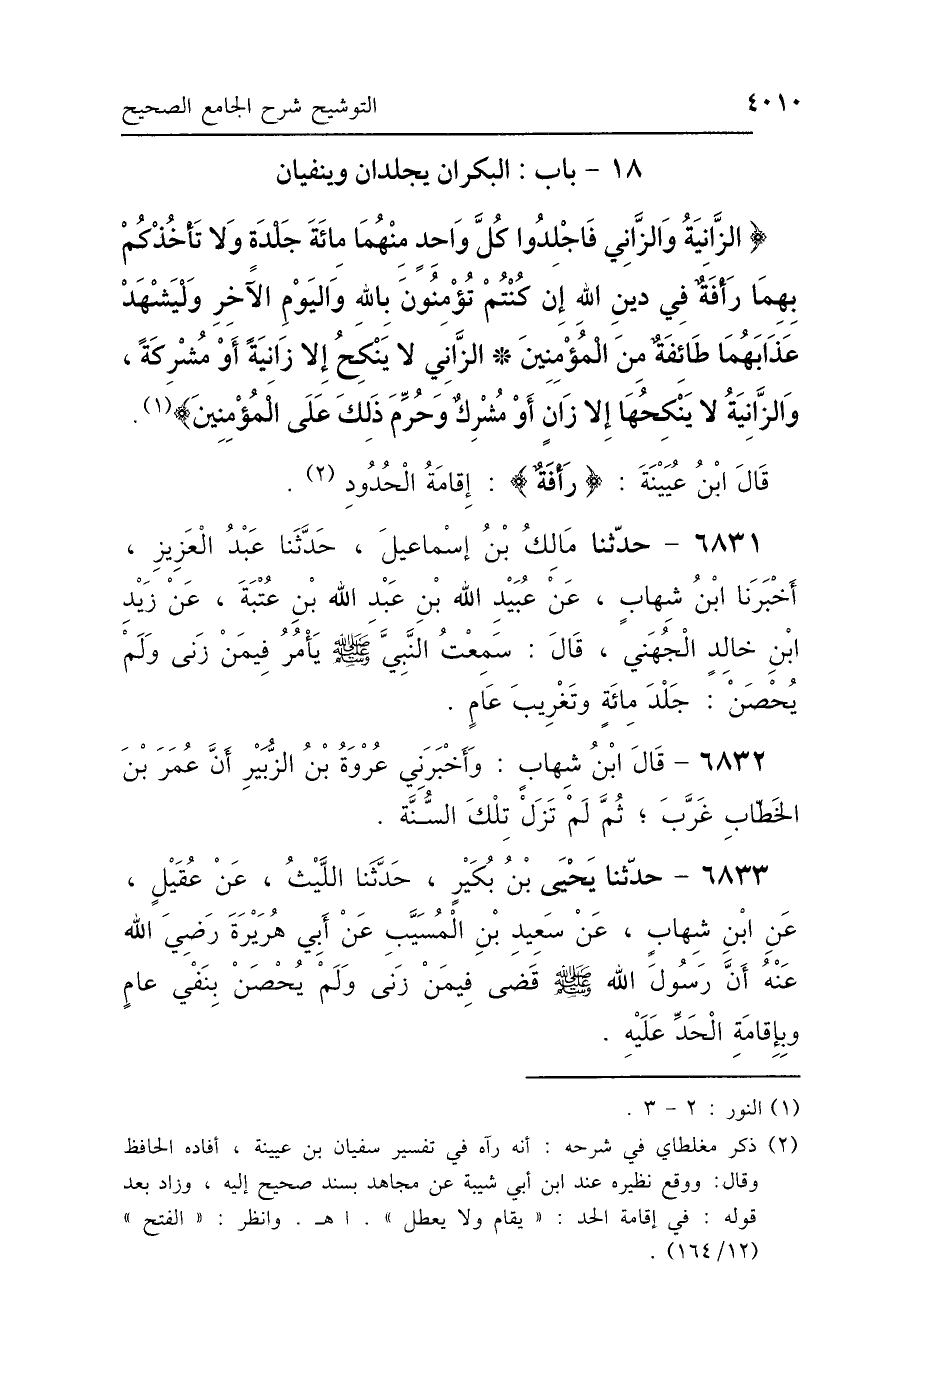 ٤٠١٠ التوشيح شرح الجامع الصحيح
١٨ - باب : البكران يجلدان وينفيان
﴿ الزَّانِيَةُ وَالزَّانِي فَاجْلِدُوا كُلَّ وَاحِدٍ مِنْهُمَا مِائَةَ جَلْدَةٍ وَلا تَأْخُذْكُمْ
بِهِمَا رَأْفَةٌ فِي دِينِ اللهِ إِن كُنْتُمْ تُؤْمِنُونَ بِاللهِ وَالْيَوْمِ الآخِرِ وَلْيَشْهَدْ
عَذَابَهُمَا طَائِفَةٌ مِنَ الْمُؤْمِنِينَ * الزَّانِي لا يَنْكِحُ إِلا زَانِيَةً أَوْ مُشْرِكَةً ،
وَالزَّانِيَةُ لا يَنْكِحُهَا إِلا زَانٍ أَوْ مُشْرِكٌ وَحُرِّمَ ذَلِكَ عَلَى الْمُؤْمِنِينَ﴾(١) .
قَالَ ابْنُ عُيَيْنَةَ : ﴿ رَأْفَةٌ ﴾ : إِقَامَةُ الْحُدُودِ (٢) .
٦٨٣١ - حدّثنا مَالِكُ بْنُ إِسْمَاعِيلَ ، حَدَّثَنَا عَبْدُ الْعَزِيزِ ،
أَخْبَرَنَا ابْنُ شِهَابٍ ، عَنْ عُبَيْدِ اللهِ بْنِ عَبْدِ اللهِ بْنِ عُتْبَةَ ، عَنْ زَيْدِ
ابْنِ خَالِدٍ الْجُهَنِي ، قَالَ : سَمِعْتُ النَّبِيَّ ﷺ يَأْمُرُ فِيمَنْ زَنَى وَلَمْ
يُحْصَنْ : جَلْدَ مِائَةٍ وَتَغْرِيبَ عَامٍ .
٦٨٣٢ - قَالَ ابْنُ شِهَابٍ : وَأَخْبَرَنِي عُرْوَةُ بْنُ الزُّبَيْرِ أَنَّ عُمَرَ بْنَ
الْخَطّابِ غَرَّبَ ؛ ثُمَّ لَمْ تَزَلْ تِلْكَ السُّنَّةَ .
٦٨٣٣ - حدّثنا يَحْيَى بْنُ بُكَيْرٍ ، حَدَّثَنَا اللَّيْثُ ، عَنْ عُقَيْلٍ ،
عَنِ ابْنِ شِهَابٍ ، عَنْ سَعِيدِ بْنِ الْمُسَيَّبِ عَنْ أَبِي هُرَيْرَةَ رَضِيَ الله
عَنْهُ أَنَّ رَسُولَ اللهِ ﷺ قَضَى فِيمَنْ زَنَى وَلَمْ يُحْصَنْ بِنَفْيِ عَامٍ
وبِإِقَامَةِ الْحَدِّ عَلَيْهِ .
(١) النور : ٢ - ٣ .
(٢) ذكر مغلطاي في شرحه : أنه رآه في تفسير سفيان بن عيينة ، أفاده الحافظ
وقال: ووقع نظيره عند ابن أبي شيبة عن مجاهد بسند صحيح إليه ، وزاد بعد
قوله : في إقامة الحد : « يقام ولا يعطل » . ا هـ . وانظر : « الفتح »
(١٦٤/١٢) .